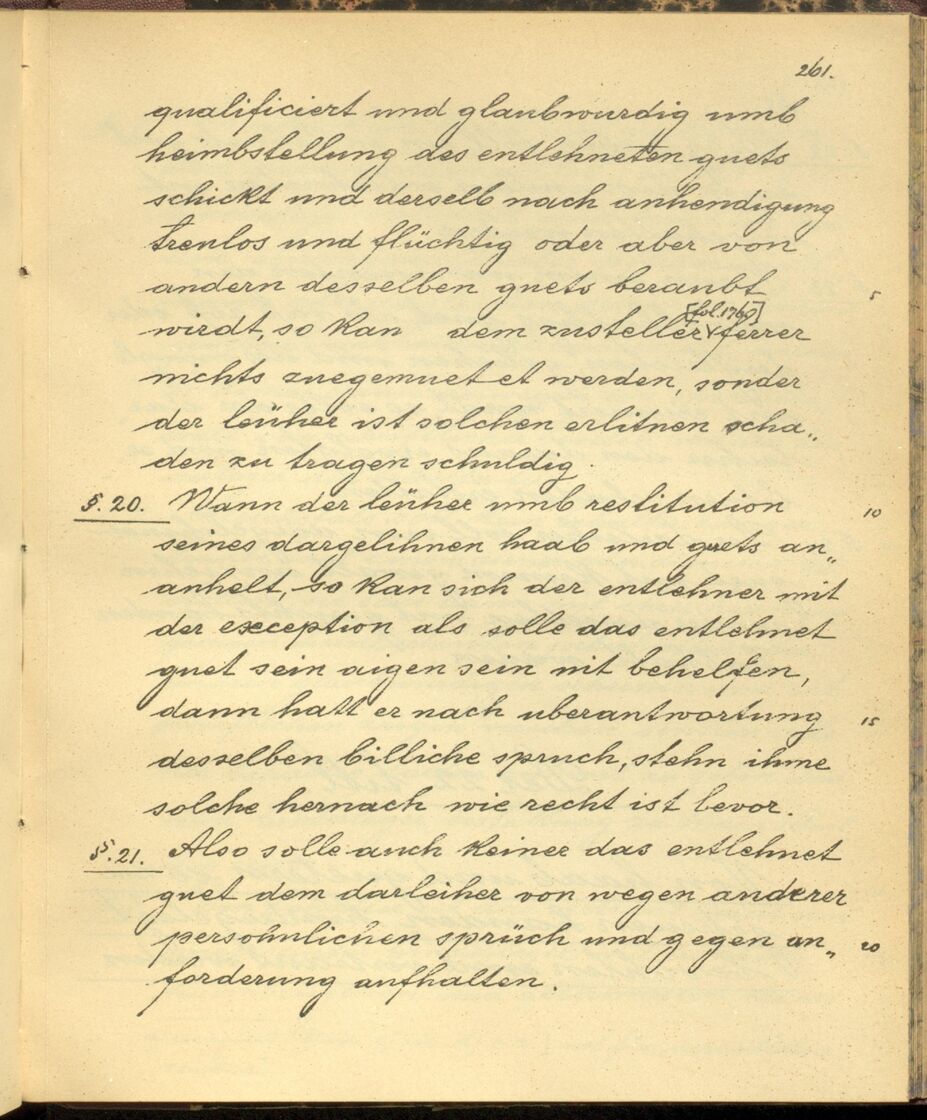 261.
qualificiert und glaubwurdig umb
heimbstellung des entlehneten guets
schickt und derselb nach anhendigung
trenlos und flüchtig oder aber von
andern desselben guets beraubt 5
[fol. 176v]
wirdt, so kan dem zusteller ferrer
nichts zuegemuetet werden, sonder
der leüher ist solchen erlitnen scha„
den zu tragen schuldig.
§. 20. Wann der leüher umb restitution 10
seines dargelihnen haab und guets an„
anhelt, so kan sich der entlehner mit
der exception als solle das entlehnet
guet sein aigen sein nit behelfen,
dann hatt er nach uberantwortung 15
desselben billiche spruch, stehn ihme
solche hernach wie recht ist bevor.
§. 21. Also solle auch keiner das entlehnet
guet dem darleiher von wegen anderer
persohnlichen sprüch und gegen an„ 20
forderung aufhalten.